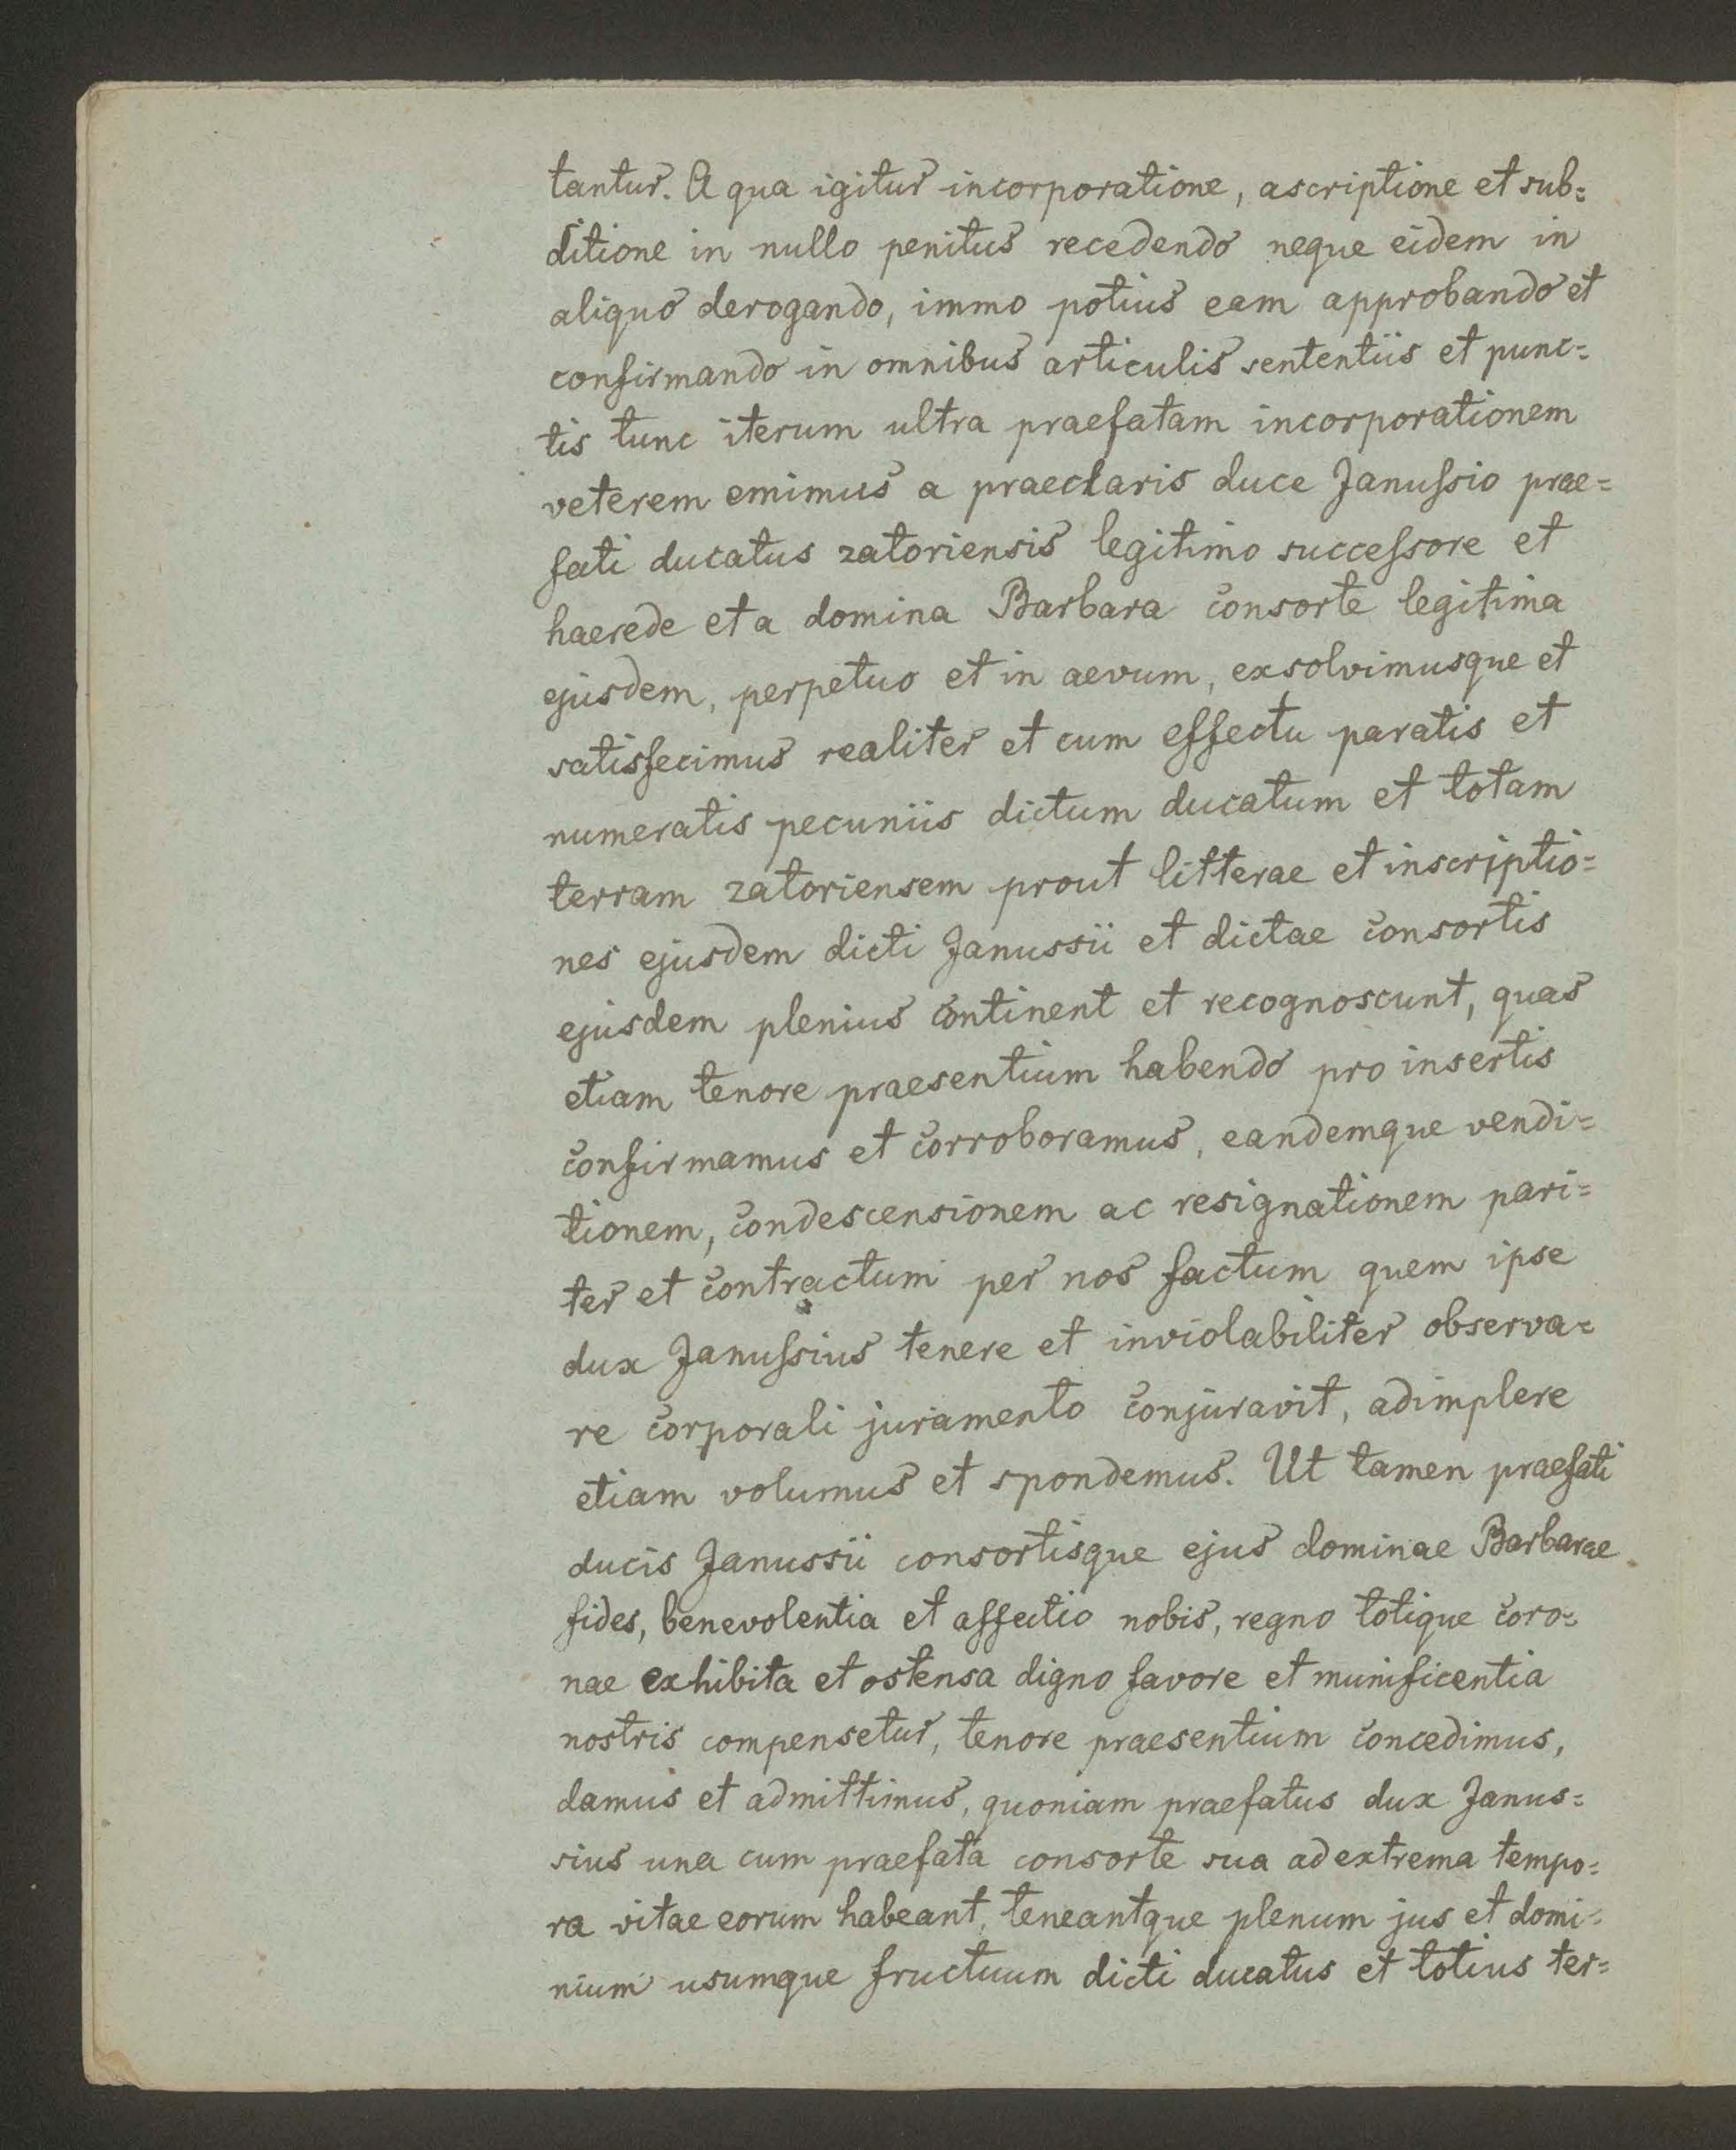 tantur. A qua igitur incorporatione, ascriptione et sub=
ditione in nullo penitus recedendo neque eidem in
aliquo derogando, immo potius eam approbando et
confirmando in omnibus articulis sententiis et punc=
tis tunc iterum ultra praefatam incorporationem
veterem emimus a praeclaris duce Januſsio prae=
fati ducatus zatoriensis legitimo succeſsore et
haerede et a domina Barbara consorte legitima
ejusdem, perpetuo et in aevum, exsolvimusque et
satisfecimus realiter et cum effectu paratis et
numeratis pecuniis dictum ducatum et totam
terram zatoriensem prout litterae et inscriptio=
nes ejusdem dicti Janussii et dictae consortis
ejusdem plenius continent et recognoscunt, quas
etiam tenore praesentium habendo pro insertis
confirmamus et corroboramus, eandemque vendi=
tionem, condescensionem ac resignationem pari=
ter et contractum per nos factum quem ipse
dux Januſsius tenere et inviolabiliter observa=
re corporali juramento conjuravit, adimplere
etiam volumus et spondemus. Ut tamen praefati
ducis Janussii consortisque ejus dominae Barbarae
fides, benevolentia et affectio nobis, regno totique coro=
nae exhibita et ostensa digno favore et munificentia
nostris compensetur, tenore praesentium concedimus,
damus et admittimus, quoniam praefatus dux Janus=
sius una cum praefata consorte sua ad extrema tempo=
ra vitae eorum habeant, teneantque plenum jus et domi=
nium usumque fructuum dicti ducatus et totius ter=